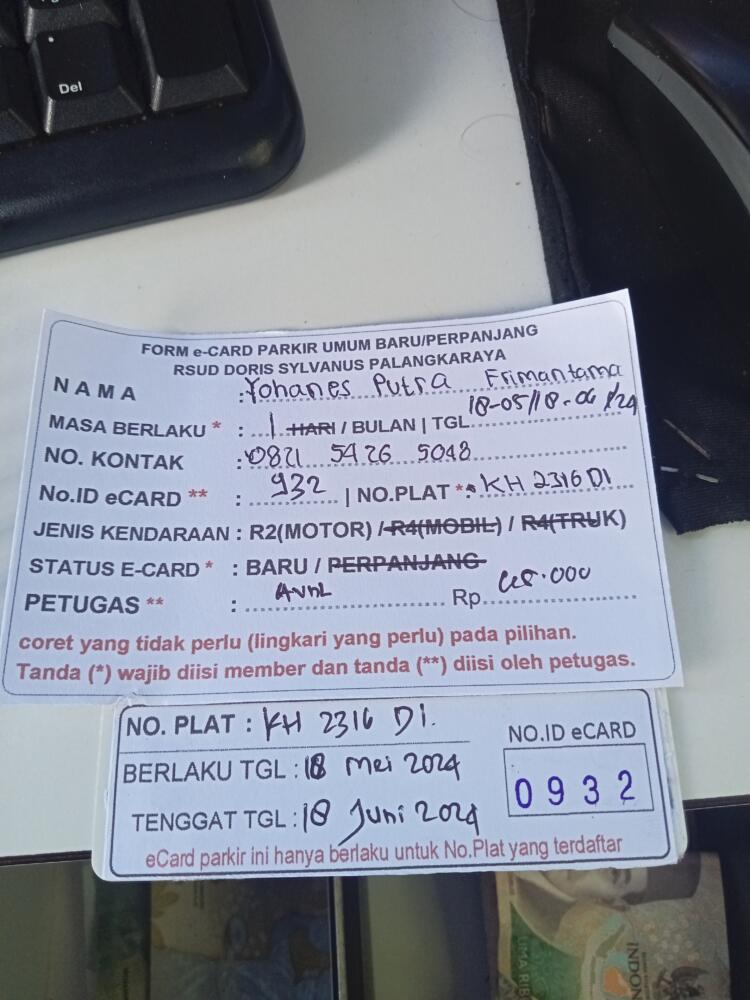 Del
FORM e-CARD PARKIR UMUM BARU/PERPANJANG
RSUD DORIS SYLVANUS PALANGKARAYA
NAMA : Yohanes Putra Frimantama
MASA BERLAKU * : 1 HARI / BULAN | TGL. 18-05/18-06/24
NO. KONTAK : 0821 5426 5048
No.ID eCARD ** : 932 | NO.PLAT **: KH 2316 DI
JENIS KENDARAAN : R2(MOTOR) / R4(MOBIL) / R4(TRUK)
STATUS E-CARD * : BARU / PERPANJANG
PETUGAS ** : Rp. .000
coret yang tidak perlu (lingkari yang perlu) pada pilihan.
Tanda (*) wajib diisi member dan tanda (**) diisi oleh petugas.
NO. PLAT : KH 2316 DI.
NO.ID eCARD
BERLAKU TGL : 18 Mei 2024
0932
TENGGAT TGL : 18 Juni 2024
eCard parkir ini hanya berlaku untuk No.Plat yang terdaftar